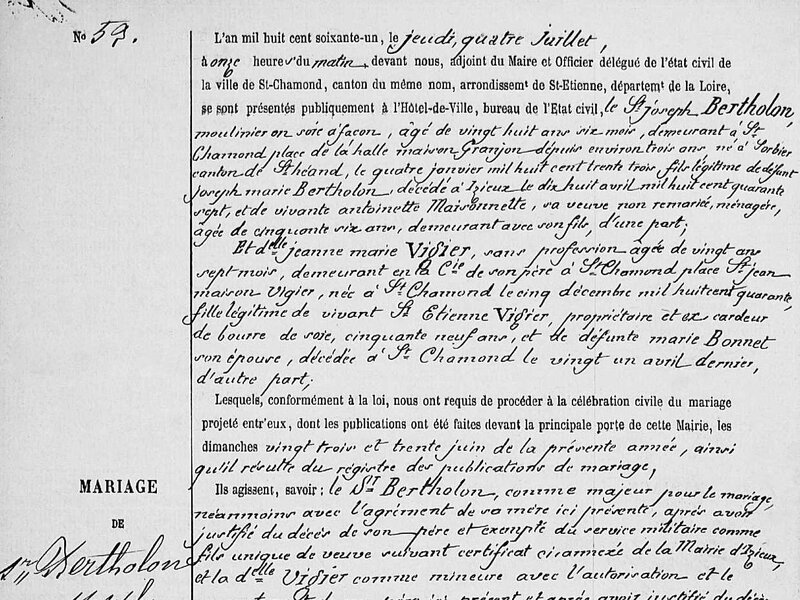 No 59.
L'an mil huit cent soixante-un, le jeudi, quatre Juillet,
à onze heures du matin, devant nous, adjoint du Maire et Officier délégué de l'état civil de
la ville de St-Chamond, canton du même nom, arrondissemt de St-Etienne, départemt de la Loire,
se sont présentés publiquement à l'Hôtel-de-Ville, bureau de l'Etat civil, le Sr joseph Bertholon,
moulinier en soie à façon, âgé de vingt huit ans six mois, demeurant à St
Chamond place de la halle maison Granjon depuis environ trois ans né à Sorbier
canton de St héand, le quatre janvier mil huit cent trente trois fils légitime de défunt
Joseph marie Bertholon, décédé à Izieux le dix huit avril mil huit cent quarante
sept, et de vivante antoinette Maisonnette, sa veuve non remariée, ménagère,
âgée de cinquante six ans, demeurant avec son fils, d'une part;
Et delle jeanne marie Vigier, sans profession âgée de vingt ans
sept mois, demeurant en la Cie de son père à St Chamond place St jean
maison Vigier, née à St Chamond le cinq décembre mil huit cent quarante,
fille légitime de vivant Sr Etienne Vigier, propriétaire et ex cardeur
de bourre de soie, cinquante neuf ans, et de défunte marie Bonnet
son épouse, décédée à St Chamond le vingt un avril dernier,
d'autre part;
Lesquels, conformément à la loi, nous ont requis de procéder à la célébration civile du mariage
projeté entr'eux, dont les publications ont été faites devant la principale porte de cette Mairie, les
dimanches vingt trois et trente juin de la présente année, ainsi
qu'il résulte du régistre des publications de mariage,
MARIAGE
DE
sr Bertholon
Ils agissent, savoir: le Sr Bertholon, comme majeur pour le mariage,
néanmoins avec l'agrément de sa mère ici présente, après avoir
justifié du décès de son père et exempté du service militaire comme
fils unique de veuve suivant certificat ci annexé de la Mairie d'Izieux,
et la delle Vigier comme mineure avec l'autorisation et le